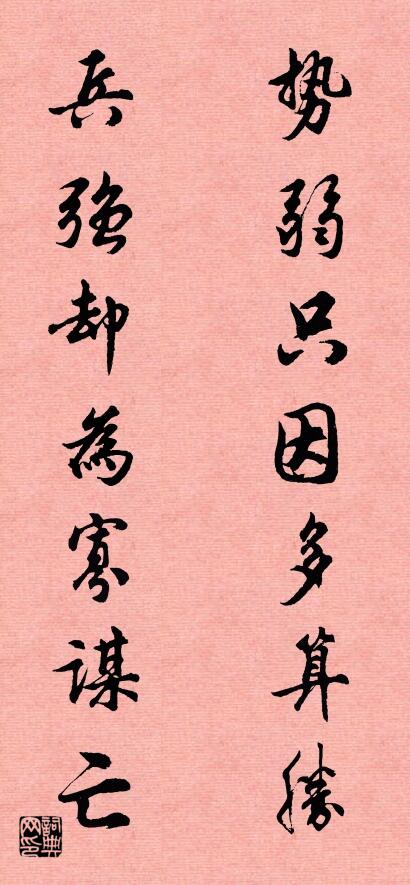 势弱只因多算勝
兵強却為寡謀亡
詞典网印